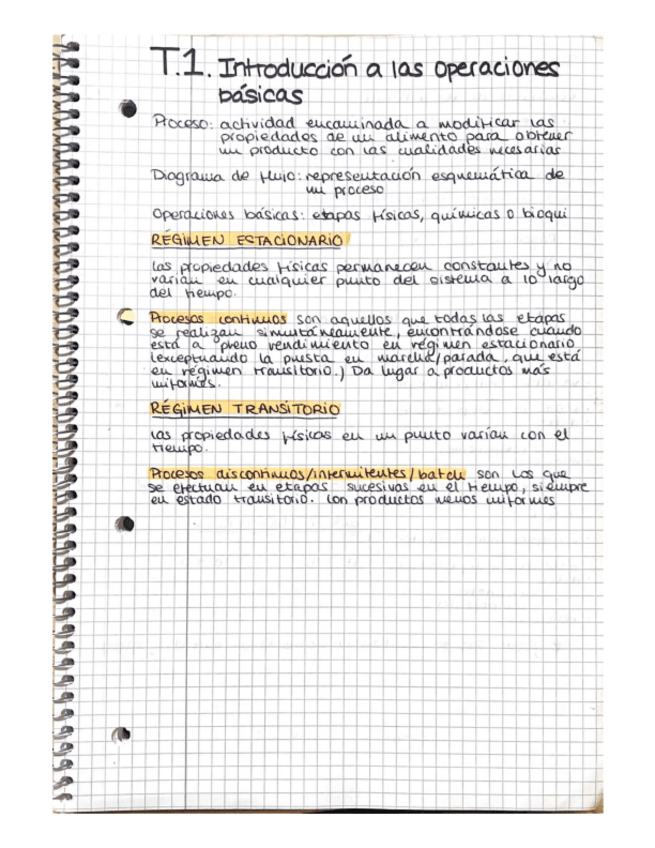 T.1. Introducción a las operaciones
básicas
Proceso: actividad encaminada a modificar las
propiedades de un alimento para obtener
un producto con las cualidades necesarias
Diagrama de flujo: representación esquemática de
un proceso
Operaciones básicas: etapas físicas, químicas o bioqui
RÉGIMEN ESTACIONARIO
Las propiedades físicas permanecen constantes y no
varían en cualquier punto del sistema a lo largo
del tiempo.
Procesos continuos son aquellos que todas las etapas
se realizan simultáneamente, encontrándose cuando
está a pleno rendimiento en régimen estacionario
(exceptuando la puesta en marcha/parada, que está
en régimen transitorio.) Da lugar a productos más
uniformes.
RÉGIMEN TRANSITORIO
Las propiedades físicas en un punto varían con el
tiempo.
Procesos discontinuos/intermitentes/batch son los que
se efectuan en etapas sucesivas en el tiempo, siempre
en estado transitorio. Con productos menos uniformes